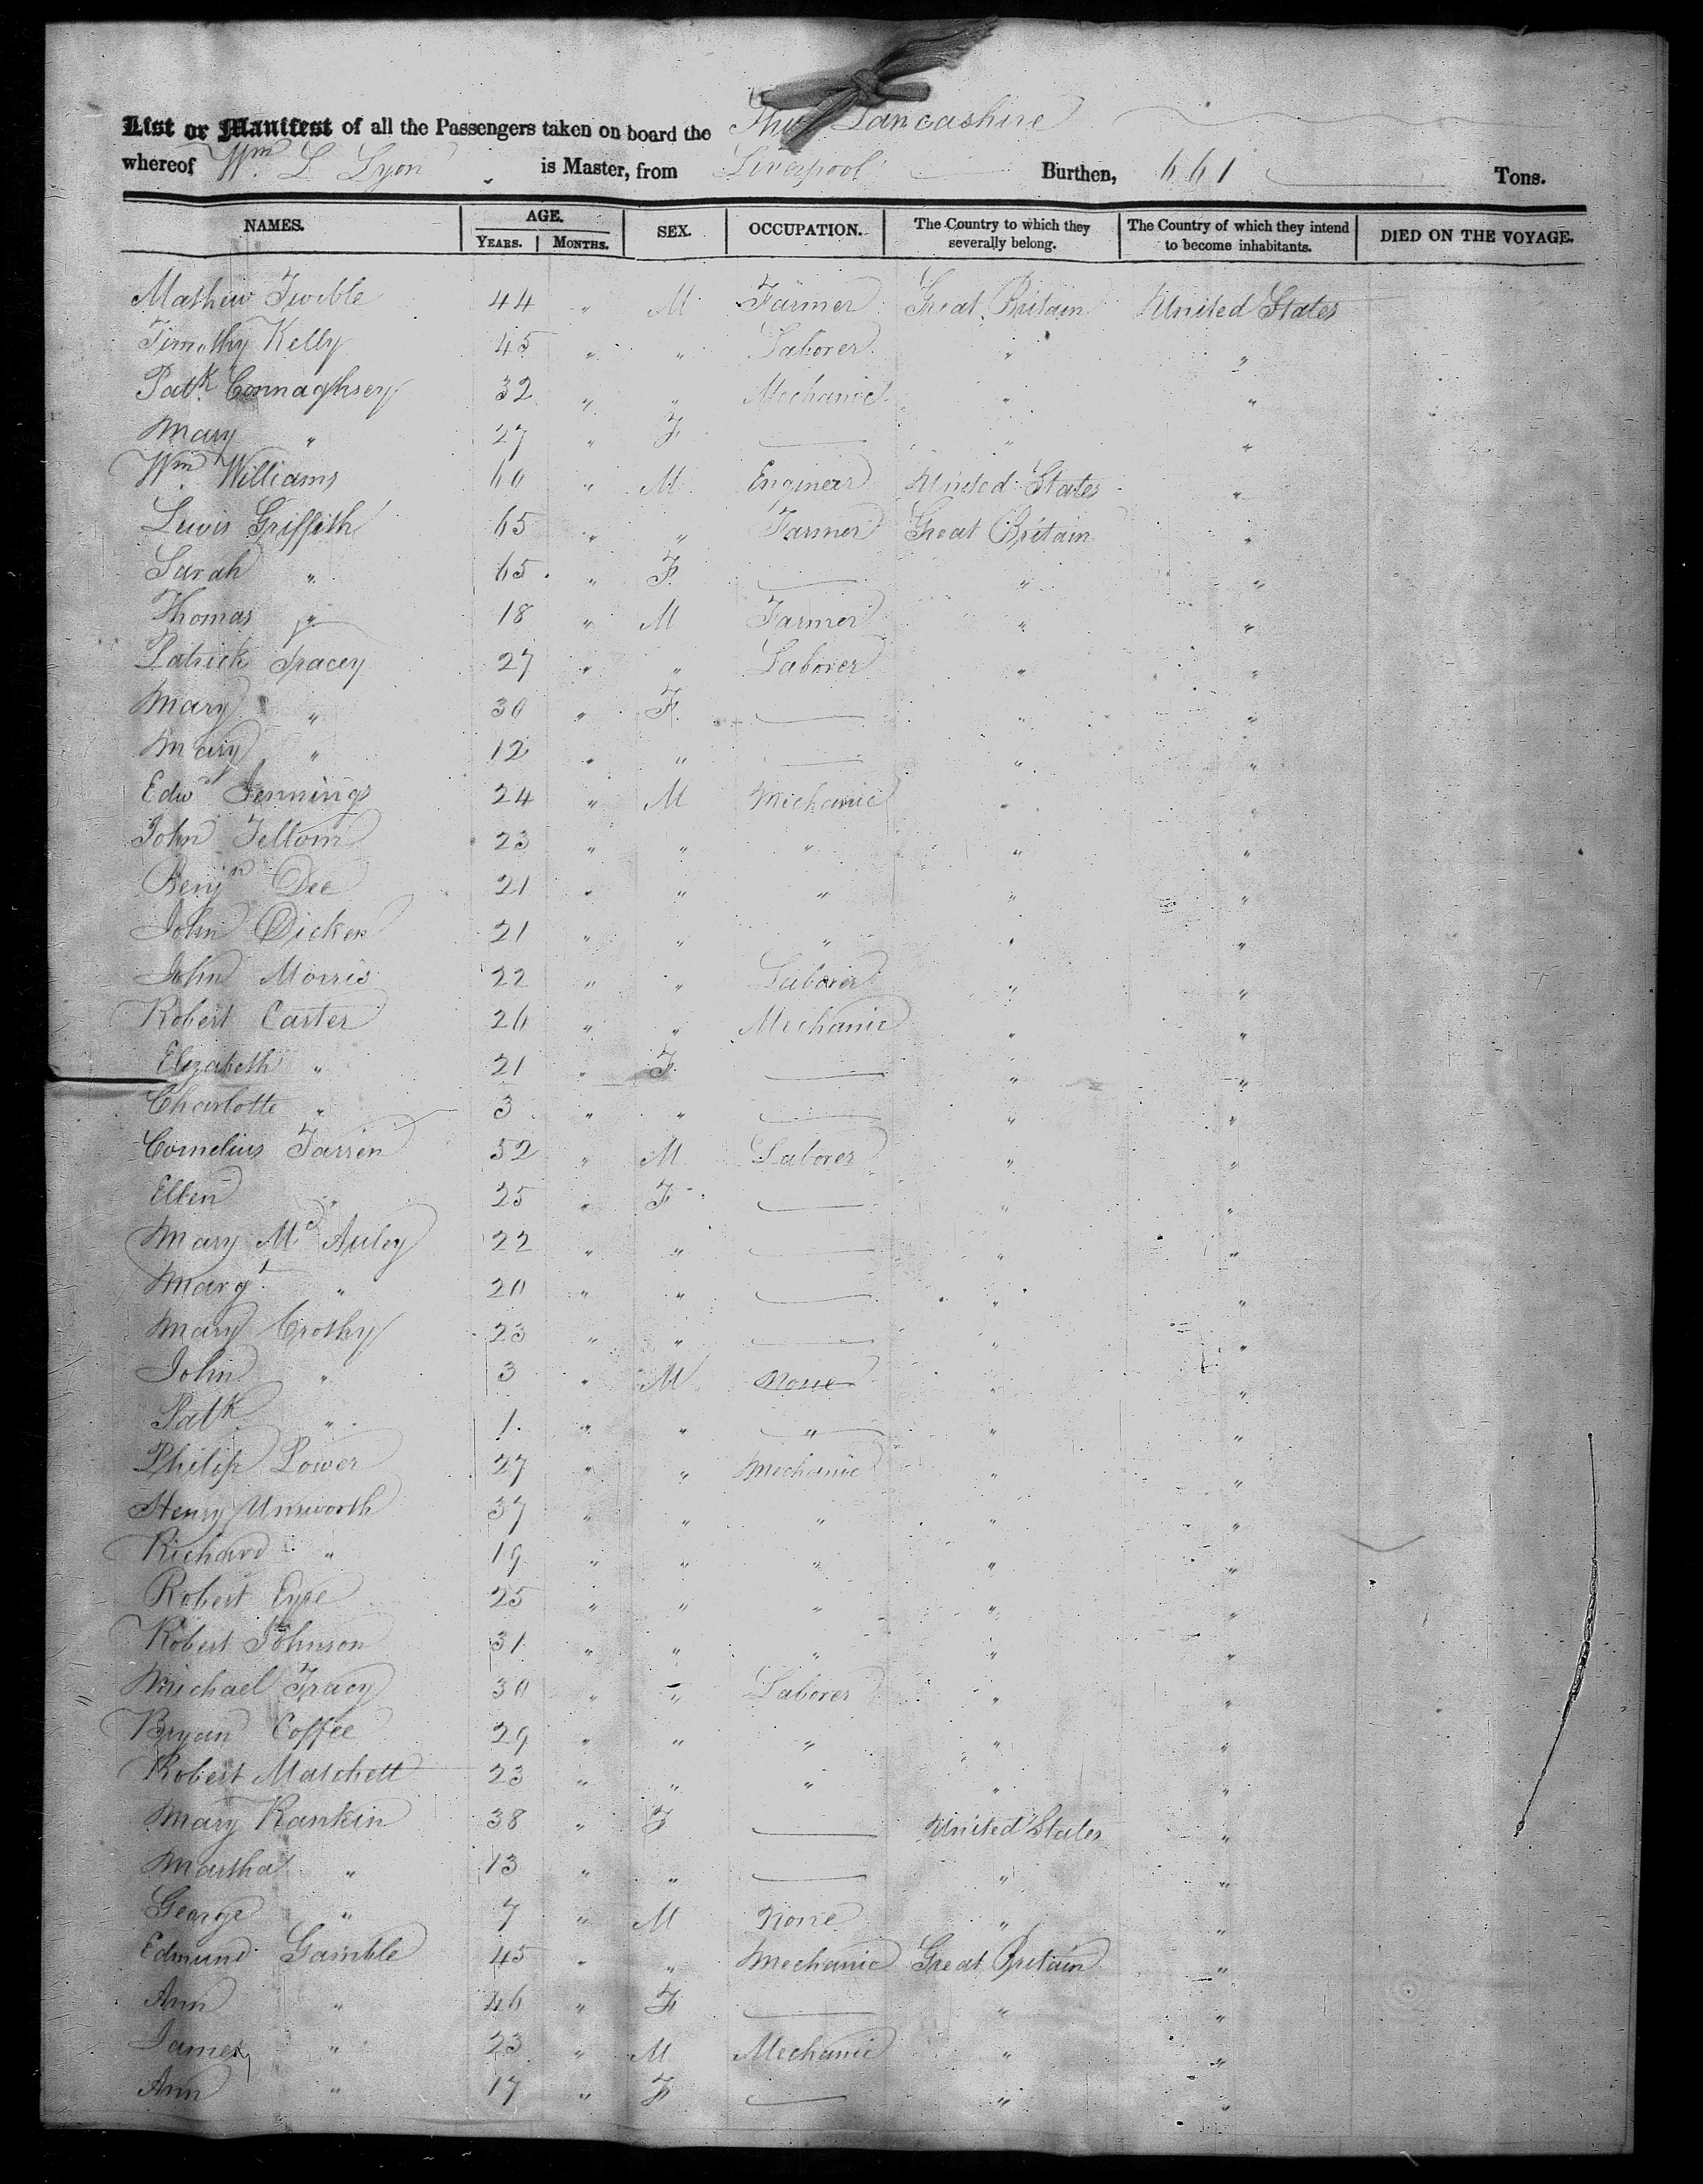 List or Manifest of all the Passengers taken on board the Ship Lancashire
whereof Wm. L Lyon is Master, from Liverpool Burthen, 661 Tons.
NAMES. AGE. YEARS. MONTHS. SEX. OCCUPATION. The Country to which they severally belong. The Country of which they intend to become inhabitants. DIED ON THE VOYAGE.
Mathew Twible 44 " M Farmer Great Britain United States
Timothy Kelly 45 " " Laborer " "
Patk. Connaghsey 32 " " Mechanic " "
Mary " 27 " F — " "
Wm. Williams 60 " M Engineer United States "
Lewis Griffith 65 " " Farmer Great Britain "
Sarah " 65 " F — " "
Thomas " 18 " M Farmer " "
Patrick Tracey 27 " " Laborer " "
Mary " 30 " F — " "
Mary " 12 " " — " "
Edwd Jennings 24 " M Mechanic " "
John Fellom 23 " " " " "
Benjn Dee 21 " " " " "
John Dicken 21 " " " " "
John Morris 22 " " Laborer " "
Robert Carter 26 " " Mechanic " "
Elizabeth " 21 " F — " "
Charlotte " 3 " " — " "
Cornelius Farren 52 " M Laborer " "
Ellen " 25 " F — " "
Mary Mc Auley 22 " " — " "
Margt. " 20 " " — " "
Mary Crosby 23 " " — " "
John " 3 " M None " "
Patk " 1 " " " " "
Philip Power 27 " " Mechanic " "
Henry Unsworth 37 " " " " "
Richard " 19 " " " " "
Robert Eyre 25 " " " " "
Robert Johnson 31 " " " " "
Michael Tracy 30 " " Laborer " "
Bryan Coffee 29 " " " " "
Robert Matchett 23 " " " " "
Mary Rankin 38 " F — United States "
Martha " 13 " " — " "
George " 7 " M None " "
Edmund Gamble 45 " " Mechanic Great Britain "
Ann " 46 " F — " "
James " 23 " M Mechanic " "
Ann " 17 " F — " "